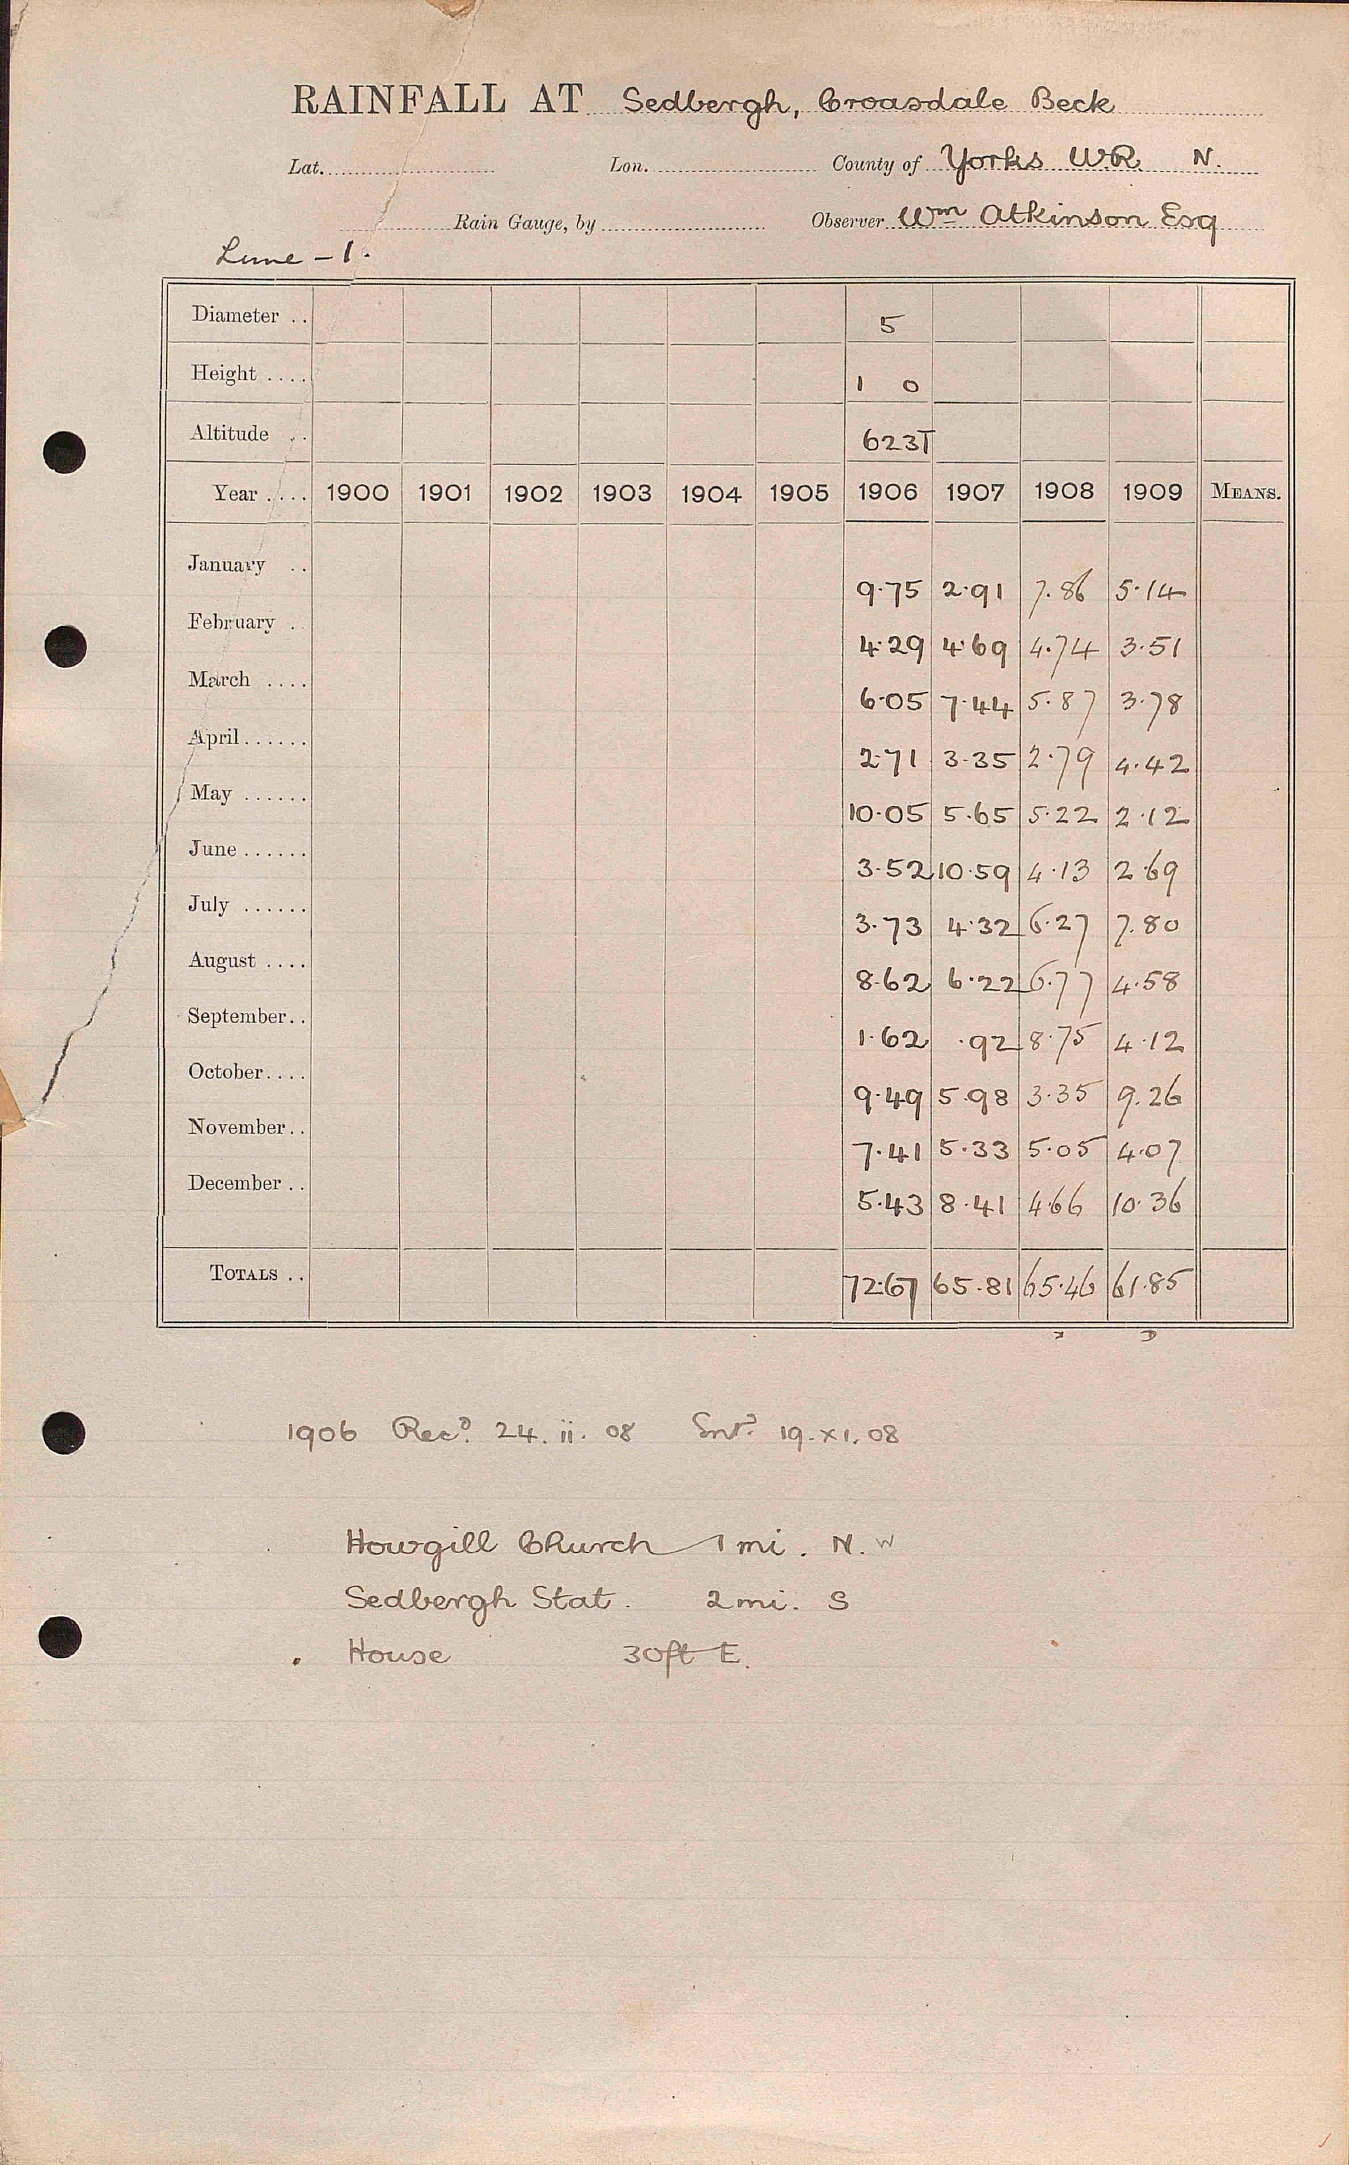 RAINFALL AT Sedbergh, Croasdale Beck
Lat. Lon. County of Yorks WR. N.
Rain Gauge, by Observer Wm Atkinson Esq
Lune - 1.
Diameter .. 5
Height .... 1 0
Altitude .. 623T
Year .... 1900 1901 1902 1903 1904 1905 1906 1907 1908 1909 MEANS.
January .. 9.75 2.91 7.86 5.14
February . 4.29 4.69 4.74 3.51
March .... 6.05 7.44 5.87 3.78
April...... 2.71 3.35 2.79 4.42
May ...... 10.05 5.65 5.22 2.12
June ...... 3.52 10.59 4.13 2.69
July ...... 3.73 4.32 6.27 7.80
August .... 8.62 6.22 6.77 4.58
September.. 1.62 .92 8.75 4.12
October.... 9.49 5.98 3.35 9.26
November.. 7.41 5.33 5.05 4.07
December .. 5.43 8.41 4.66 10.36
TOTALS .. 72.67 65.81 65.46 61.85
1906 Recd. 24.ii.08 Entd. 19.xi.08
Howgill Church 1 mi. N.W
Sedbergh Stat. 2 mi. S
House 30ft E.